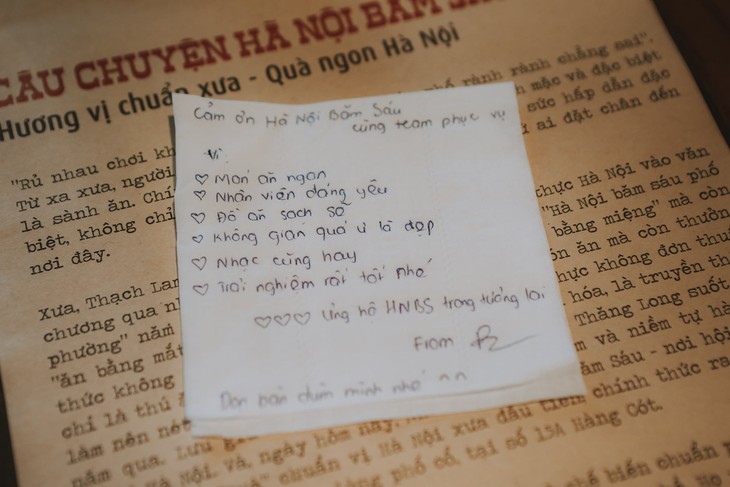 CÂU CHUYỆN HÀ NỘI BĂM SÁU
Hương vị chuẩn xưa - Quà ngon Hà Nội
"Rủ nhau chơi kh phố rành rành chẳng sai".
Từ xa xưa, người mặc và đặc biệt
là sành ăn. Chí sức hấp dẫn đặc
biệt, không chỉ ai đặt chân đến
nơi đây.
Xưa, Thạch Lam thực Hà Nội vào văn
chương qua nh "Hà Nội băm sáu phố
phường" năm bằng miệng" mà còn
"ăn bằng mắt ón ăn mà còn thưởn
thức không hức không đơn thuầ
chỉ là thú hóa, là truyền th
làm nên nét Thăng Long suốt
năm qua. Lưu gi m và niềm tự hà
Hà Nội và, ngày hôm nay, ăm Sáu - nơi hội
chuẩn vị Hà Nội xưa đầu tiên chính thức ra
phố cổ tại số 15A Hàng Cót.
chế biến chuẩn
Cảm ơn Hà Nội Băm Sáu
cùng team phục vụ
Vì:
♡ Món ăn ngon
♡ Nhân viên đáng yêu
♡ Đồ ăn sạch sẽ
♡ Không gian quá ư là đẹp
♡ Nhạc cũng hay
♡ Trải nghiệm rất tốt nhé
♡♡♡ Ủng hộ HNBS trong tương lai
From
Dọn bàn dùm mình nhé ^^